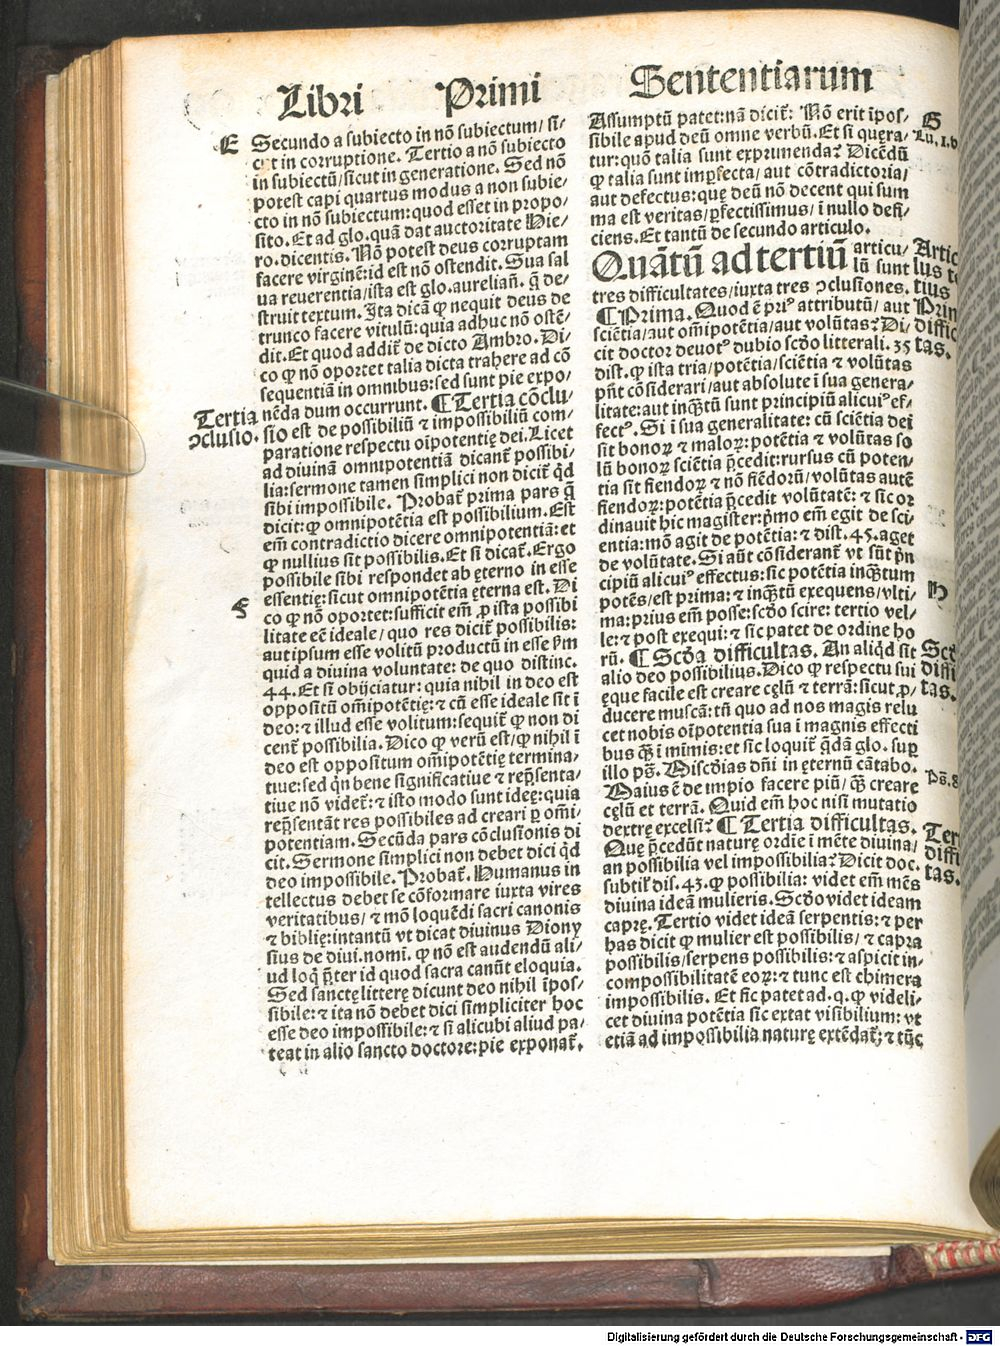 Libri Primi Sententiarum
E
Secundo a subiecto in nõ subiectum/ si-
cut in corruptione. Tertio a nõ subiecto
in subiectũ/ sicut in generatione. Sed nõ
potest capi quartus modus a non subie/
cto in nõ subiectum: quod esset in propo/
sito. Et ad glo. quã dat auctoritate Hie/
ro. dicentis. Nõ potest deus corruptam
facere virginẽ: id est nõ ostendit. Sua sal
ua reuerentia/ ista est glo. aurelianẽ. q̃ de/
struit textum. Ita dicã ꝙ nequit deus de
trunco facere vitulũ: quia adhuc nõ ostẽ/
dit. Et quod addit᷑ de dicto Ambro. Di/
co ꝙ nõ oportet talia dicta trahere ad cõ
sequentiã in omnibus: sed sunt pie expo/
nẽda dum occurrunt. ¶ Tertia cõclu/
Tertia
ↄclusio.
sio est de possibiliũ ⁊ impossibiliũ com/
paratione respectu oĩpotentię dei. Licet
ad diuinã omnipotentiã dicant᷑ possibi/
lia: sermone tamen simplici non dicit᷑ qd̃
sibi impossibile. Probat᷑ prima pars q̃
dicit: ꝙ omnipotẽtia est possibilium. Est
em̃ contradictio dicere omnipotentiã: et
ꝙ nullius sit possibilis. Et si dicat᷑. Ergo
possibile sibi respondet ab ęterno in esse
essentię: sicut omnipotẽtia ęterna est. Di
co ꝙ nõ oportet: sufficit em̃ ꝓ ista possibi
F
litate eẽ ideale/ quo res dicit᷑ possibilis:
aut ipsum esse volitũ productũ in esse p̃m
quid a diuina voluntate: de quo distinc.
44. Et si obijciatur: quia nihil in deo est
oppositũ om̃ipotẽtię: ⁊ cũ esse ideale sit ĩ
deo: ⁊ illud esse volitum: sequit᷑ ꝙ non di
cent᷑ possibilia. Dico ꝙ verũ est/ ꝙ nihil ĩ
deo est oppositum om̃ipotẽtię termina/
tiue: sed q̃n bene significatiue ⁊ rep̃senta/
tiue nõ videt᷑: ⁊ isto modo sunt ideę: quia
rep̃sentãt res possibiles ad creari ꝑ om̃i/
potentiam. Secũda pars cõclusionis di
cit. Sermone simplici non debet dici qd̃
deo impossibile. Probat᷑. Humanus in
tellectus debet se cõformare iuxta vires
veritatibus/ ⁊ mõ loquẽdi sacri canonis
⁊ biblię: intantũ vt dicat diuinus Diony
sius de diui. nomi. ꝙ nõ est audendũ ali/
ud loq̃ p̃ter id quod sacra canũt eloquia.
Sed sanctę litterę dicunt deo nihil ĩpos/
sibile: ⁊ ita nõ debet dici simpliciter hoc
esse deo impossibile: ⁊ si alicubi aliud pa/
teat in alio sancto doctore: pie exponat᷑.
Assumptũ patet: nã dicit᷑: Nõ erit ĩpos-
sibile apud deũ omne verbũ. Et si quęra-
G
Lu. 1. b
tur: quõ talia sunt exprimenda? Dicẽdũ
ꝙ talia sunt imꝑfecta/ aut cõtradictoria/
aut defectus: quę deũ nõ decent qui sum
ma est veritas/ ꝑfectissimus/ ĩ nullo defi/
ciens. Et tantũ de secundo articulo.
Quãtũ ad tertiũ articu/
lũ sunt
tres difficultates/ iuxta tres ↄclusiones.
¶ Prima. Quod ẽ pri᷒ attributũ/ aut
sciẽtia/ aut om̃ipotẽtia/ aut volũtas? Di/
cit doctor deuot᷒ dubio scd̃o litterali. 35
dist. ꝙ ista tria/ potẽtia/ sciẽtia ⁊ volũtas
pñt cõsiderari/ aut absolute ĩ sua genera/
litate: aut inqᷓtũ sunt principiũ alicui᷒ ef/
fect᷒. Si ĩ sua generalitate: cũ sciẽtia dei
sit bonoꝝ ⁊ maloꝝ: potẽtia ⁊ volũtas so
lũ bonoꝝ sciẽtia p̃cedit: rursus cũ poten/
tia sit fiendoꝝ ⁊ nõ fiẽdorũ/ volũtas autẽ
fiendoꝝ: potẽtia p̃cedit volũtatẽ: ⁊ sic or
dinauit hic magister: p̃mo em̃ egit de sci/
entia: mõ agit de potẽtia: ⁊ dist. 45. aget
de volũtate. Si aũt cõsiderant᷑ vt sũt p̃n
cipiũ alicui᷒ effectus: sic potẽtia inqᷓtum
potẽs/ est prima: ⁊ inqᷓtũ exequens/ vlti/
H
ma: prius em̃ posse: scd̃o scire: tertio vel/
le: ⁊ post exequi: ⁊ sic patet de ordine ho
rũ. ¶ Scd̃a difficultas. An aliqd̃ sit
alio deo possibilius. Dico ꝙ respectu sui
ęque facile est creare cęlũ ⁊ terrã: sicut ꝓ/
ducere muscã: tñ quo ad nos magis relu
cet nobis oĩpotentia sua ĩ magnis effecti
bus qᷓ ĩ mĩmis: et sic loquit᷑ q̃dã glo. suꝑ
illo ps̃. Miscd̃ias dñi in ęternũ cãtabo.
Ps̃. 8
Maius ẽ de impio facere piũ/ qᷓ creare
cęlũ et terrã. Quid em̃ hoc nisi mutatio
dextrę excelsi? ¶ Tertia difficultas.
Quę p̃cedũt naturę ordie ĩ mẽte diuina/
an possibilia vel impossibilia? Dicit doc.
subtil᷑ dis. 43. ꝙ possibilia: videt em̃ mẽs
diuina ideã mulieris. Scd̃o videt ideam
caprę. Tertio videt ideã serpentis: ⁊ per
has dicit ꝙ mulier est possibilis/ ⁊ capra
possibilis/ serpens possibilis: ⁊ aspicit in-
compossibilitatẽ eoꝝ: ⁊ tunc est chimera
impossibilis. Et sic patet ad. q. ꝙ videli/
cet diuina potẽtia sic extat visibilium: vt
etiã ad impossibilia naturę extẽdat᷑: ⁊ tũc
Artic
lus te
tius
Prin
diffic
tas.
Scd̃
diffi
tas.
Ter
diffi
tas.
Digitalisierung gefördert durch die Deutsche Forschungsgemeinschaft - DFG